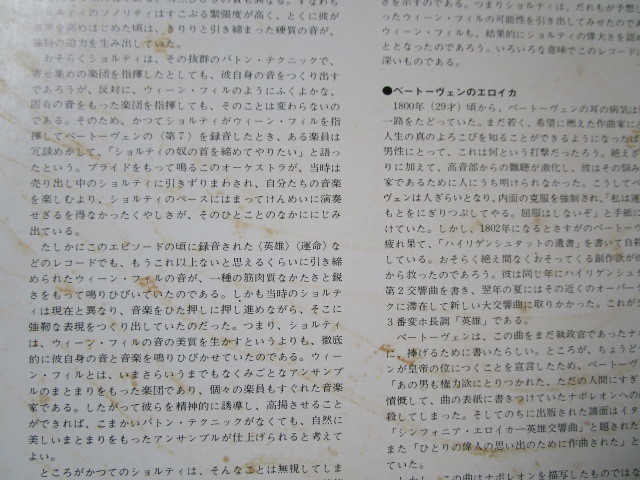 ショルティのソノリティはすこぶる緊張度が高く、とくに彼が
音声を高めはじめた頃は、きりりと引き締まった硬質の音が、
独特の迫力を生み出していた。
おそらくショルティは、その抜群のバトン・テクニックで、
寄せ集めの楽団を指揮したとしても、彼自身の音をつくり出す
であろうが、反対に、ウィーン・フィルのようにふくよかな、
固有の音をもった楽団を指揮しても、そのことは変わらないの
である。そのため、かつてショルティがウィーン・フィルを指
揮してベートーヴェンの〈第7〉を録音したとき、ある楽員は
冗談めかして、「ショルティの奴の首を締めてやりたい」と語っ
たという。プライドをもって鳴るこのオーケストラが、当時は
売り出し中のショルティに引きずりまわされ、自分たちの音楽
を楽しむより、ショルティのペースにはまってけんめいに演奏
せざるを得なかったくやしさが、そのひとことのなかににじみ
出ている。
たしかにこのエピソードの頃に録音された〈英雄〉〈運命〉な
どのレコードでも、もうこれ以上ないと思えるくらいに引き締
められたウィーン・フィルの音が、一種の筋肉質なかたさと鋭
さをもって鳴りひびいていたのである。しかも当時のショルテ
ィは現在と異なり、音楽をひた押しに押し進めながら、そこに
強靭な表現をつくり出していたのだった。つまり、ショルティ
は、ウィーン・フィルの音の美質を生かすというよりも、徹底
的に彼自身の音と音楽を鳴りひびかせていたのである。ウィー
ン・フィルとは、いまさらいうまでもなくみごとなアンサンブ
ルのまとまりをもった楽団であり、個々の楽員もすぐれた音楽
家である。したがって彼らを精神的に誘導し、高揚させること
ができれば、こまかいバトン・テクニックがなくても、自然に
美しいまとまりをもったアンサンブルが仕上げられると考えて
よい。
ところがかつてのショルティは、そんなことは無視してしま
さを示すのである。つまりショルティは、だれもが予想し
ったウィーン・フィルの可能性を引き出してみせたので
ウィーン・フィルも、結果的にショルティの偉大さを認め
ととなったのであろう。いろいろな意味でこのレコード
深いものである。
●ベートーヴェンのエロイカ
1800年(29才)頃から、ベートーヴェンの耳の病気は
一路をたどっていた。まだ若く、希望に燃えた作曲家に
人生の真のよろこびを知ることができるようになったば
男性にとって、これは何という打撃だったろう。絶えざ
りに加えて、高音部からの難聴が激化し、彼はその悩み
家であるために人にうち明けられなかった。こうして
ヴェンは人ぎらいとなり、内面の克服を強制され、「私は運
もとをにぎりつぶしてやる。屈服はしないぞ」と手紙に
けていた。しかし、1802年になるとさすがのベートーヴ
疲れ果て、「ハイリゲンシュタットの遺書」を書いて自殺
している。おそらく絶え間なくおそってくる創作欲が
から救ったのであろう。彼は同じ年にハイリゲンシュ
第2交響曲を書き、翌年の夏にはその近くのオーバーデ
クに滞在して新しい大交響曲に取りかかった。これが
3番変ホ長調「英雄」である。
ベートーヴェンは、この曲をまだ執政官であったナポ
に、捧げるために書いたらしい。ところが、ちょうど
ンが皇帝の位につくことを宣言したため、ベートーヴェ
「あの男も権力欲にとりつかれた、ただの人間にすぎ
憤慨して、曲の表紙に書きつけていたナポレオンへの
殺してしまった。そしてのちに出版された譜面はイタ
「シンフォニア・エロイカ―英雄交響曲」と題された
また「ひとりの偉人の思い出のために作曲された」と
ていた。
しかし、この曲はナポレオンを描写したものではな